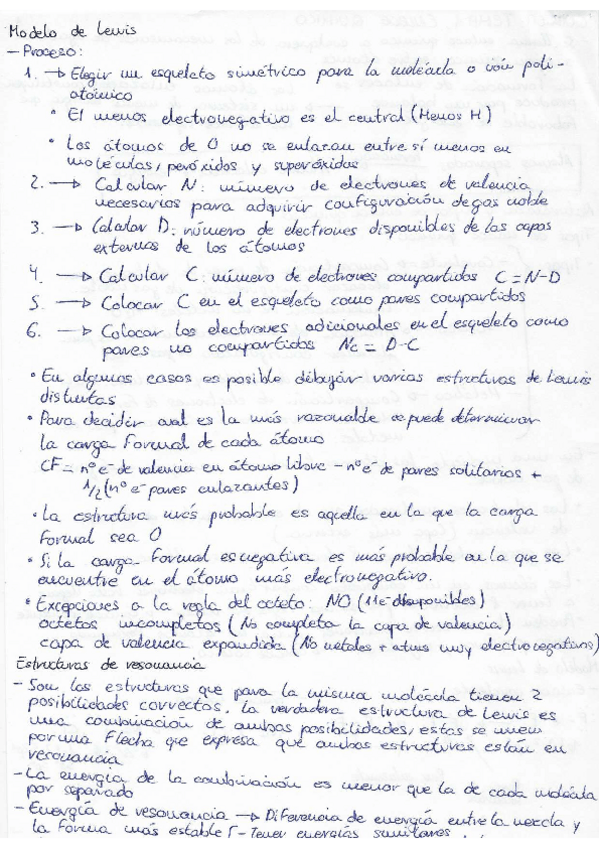 Modelo de Lewis
- Proceso:
1. → Elegir un esqueleto simétrico para la molécula o ión poli-
atómico
• El menos electronegativo es el central (Menos H)
• Los átomos de O no se enlazan entre sí menos en
moléculas, peróxidos y superóxidos
2. → Calcular N: número de electrones de valencia
necesarios para adquirir configuración de gas noble
3. → Calcular D: número de electrones disponibles de las capas
externas de los átomos
4. → Calcular C: número de electrones compartidos C = N-D
5. → Colocar C en el esqueleto como pares compartidos
6. → Colocar los electrones adicionales en el esqueleto como
pares no compartidos Nc = D-C
• En algunos casos es posible dibujar varias estructuras de Lewis
distintas
• Para decidir cual es la más razonable se puede determinar
la carga Formal de cada átomo
CF = nº e⁻ de valencia en átomo libre - nº e⁻ de pares solitarios +
1/2 (nº e⁻ pares enlazantes)
• La estructura más probable es aquella en la que la carga
Formal sea 0
• Si la carga Formal es negativa es más probable en la que se
encuentre en el átomo más electronegativo.
• Excepciones a la regla del octeto: NO (11e⁻ disponibles)
octetos incompletos (No completa la capa de valencia)
capa de valencia expandida (No metales + atmos muy electronegativos)
Estructuras de resonancia
- Son las estructuras que para la misma molécula tienen 2
posibilidades correctas, la verdadera estructura de Lewis es
una combinación de ambas posibilidades, estas se unen
por una Flecha que expresa que ambas estructuras están en
resonancia
- La energía de la combinación es menor que la de cada molécula
por separado
- Energía de resonancia → Diferencia de energía entre la mezcla y
la Forma más estable Γ - Tener energías similares